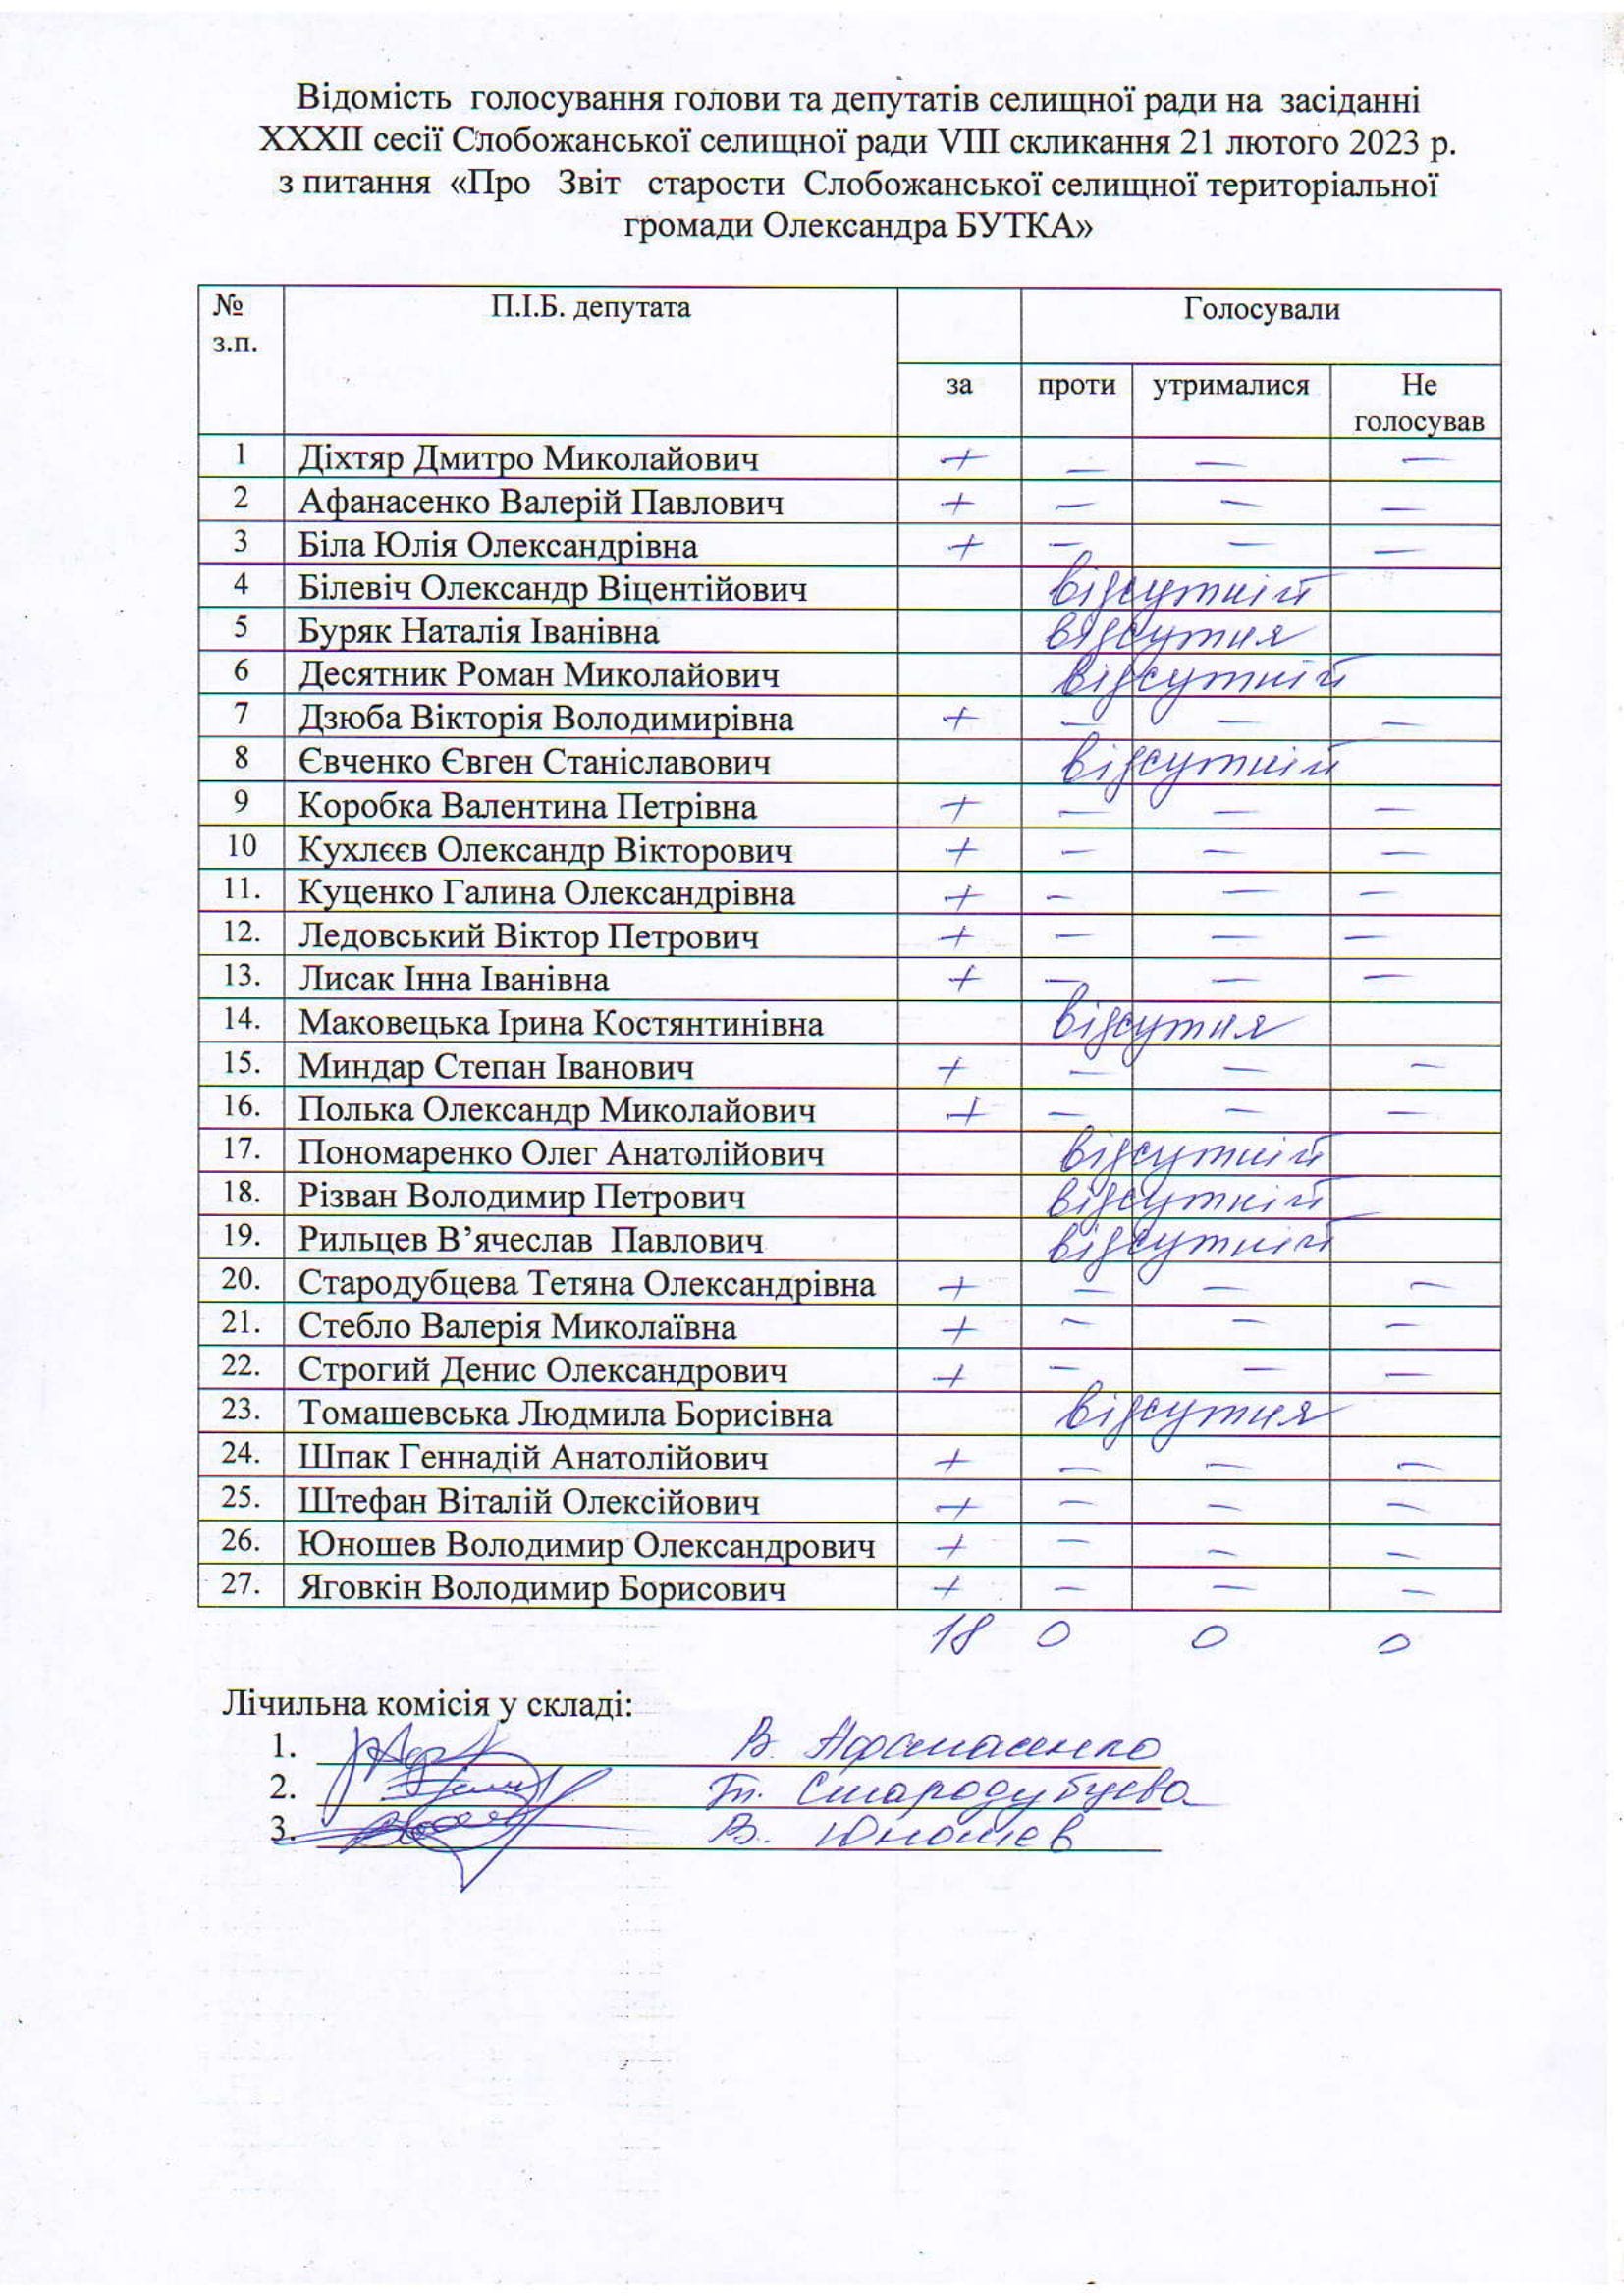 Відомість голосування голови та депутатів селищної ради на засіданні
XXXII сесії Слобожанської селищної ради VIII скликання 21 лютого 2023 р.
з питання «Про Звіт старости Слобожанської селищної територіальної
громади Олександра БУТКА»
№ з.п. П.І.Б. депутата Голосували
за проти утрималися Не голосував
1 Діхтяр Дмитро Миколайович + — — —
2 Афанасенко Валерій Павлович + — — —
3 Біла Юлія Олександрівна + — — —
4 Білевіч Олександр Віцентійович відсутній
5 Буряк Наталія Іванівна відсутня
6 Десятник Роман Миколайович відсутній
7 Дзюба Вікторія Володимирівна + — — —
8 Євченко Євген Станіславович відсутній
9 Коробка Валентина Петрівна + — — —
10 Кухлєєв Олександр Вікторович + — — —
11. Куценко Галина Олександрівна + — — —
12. Ледовський Віктор Петрович + — — —
13. Лисак Інна Іванівна + — — —
14. Маковецька Ірина Костянтинівна відсутня
15. Миндар Степан Іванович + — — —
16. Полька Олександр Миколайович + — — —
17. Пономаренко Олег Анатолійович відсутній
18. Різван Володимир Петрович відсутній
19. Рильцев В’ячеслав Павлович відсутній
20. Стародубцева Тетяна Олександрівна + — — —
21. Стебло Валерія Миколаївна + — — —
22. Строгий Денис Олександрович + — — —
23. Томашевська Людмила Борисівна відсутня
24. Шпак Геннадій Анатолійович + — — —
25. Штефан Віталій Олексійович + — — —
26. Юношев Володимир Олександрович + — — —
27. Яговкін Володимир Борисович + — — —
18 0 0 0
Лічильна комісія у складі:
1. В. Афанасенко
2. Т. Стародубцева
3. В. Юношев